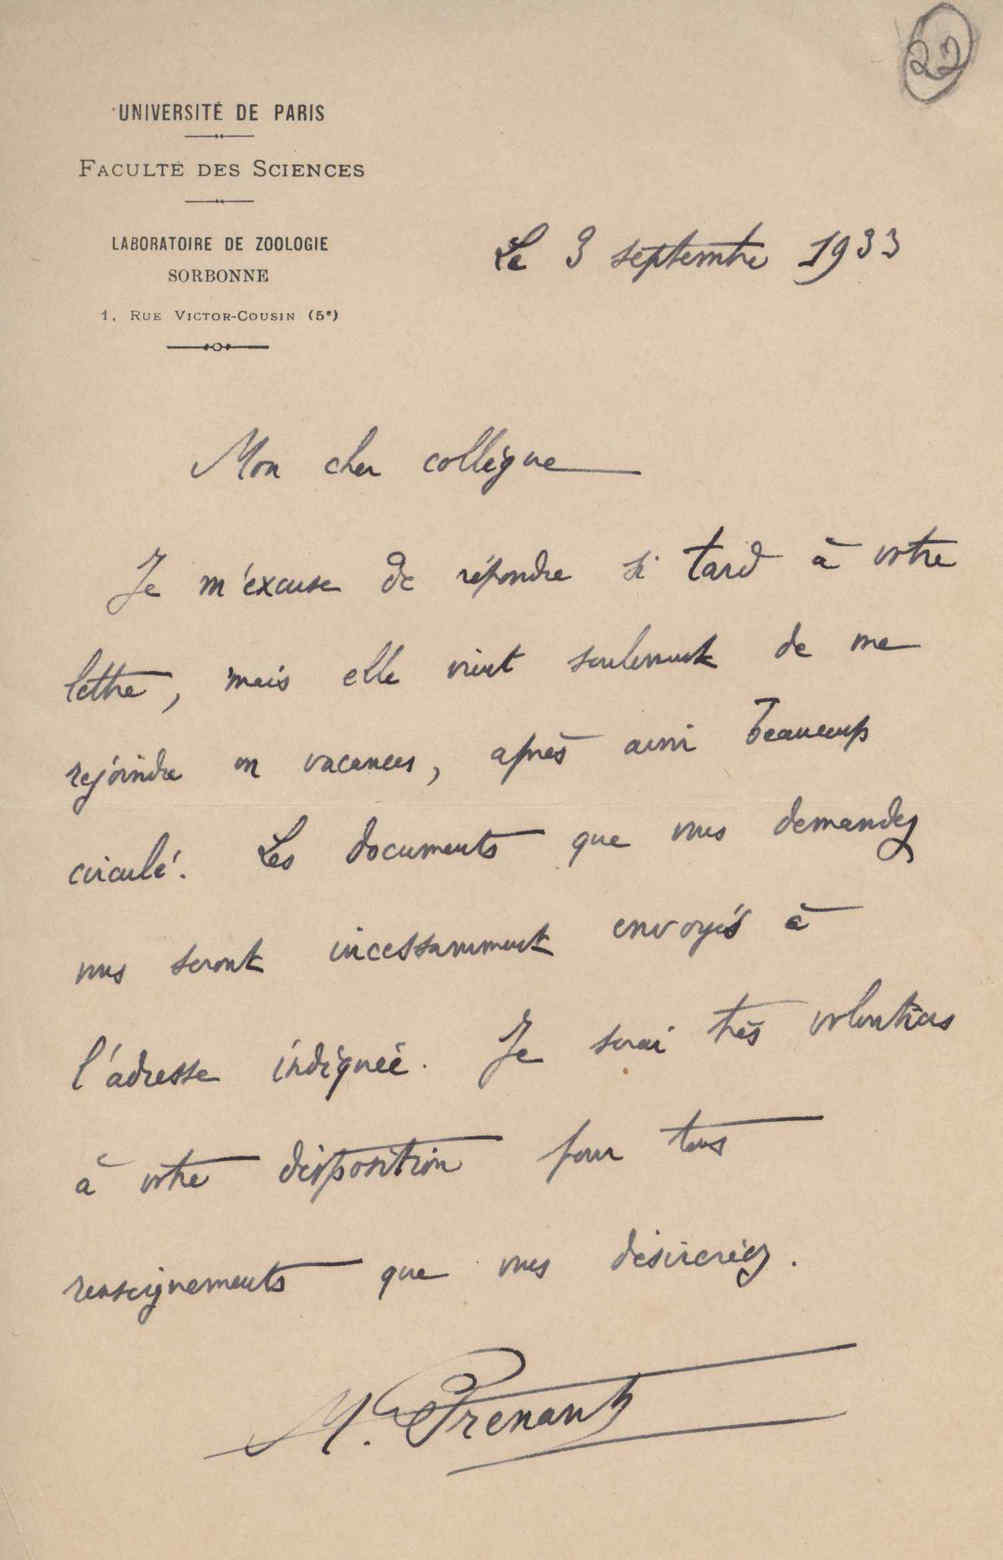 22
UNIVERSITÉ DE PARIS
FACULTÉ DES SCIENCES
LABORATOIRE DE ZOOLOGIE
SORBONNE
1, RUE VICTOR-COUSIN (5e)
Le 3 septembre 1933
Mon cher collègue
Je m'excuse de répondre si tard à votre
lettre, mais elle vient seulement de me
rejoindre en vacances, après avoir beaucoup
circulé. Les documents que vous demandez
vous seront incessamment envoyés à
l'adresse indiquée. Je serai très volontiers
à votre disposition pour tous
renseignements que vous désireriez.
M. Prenant